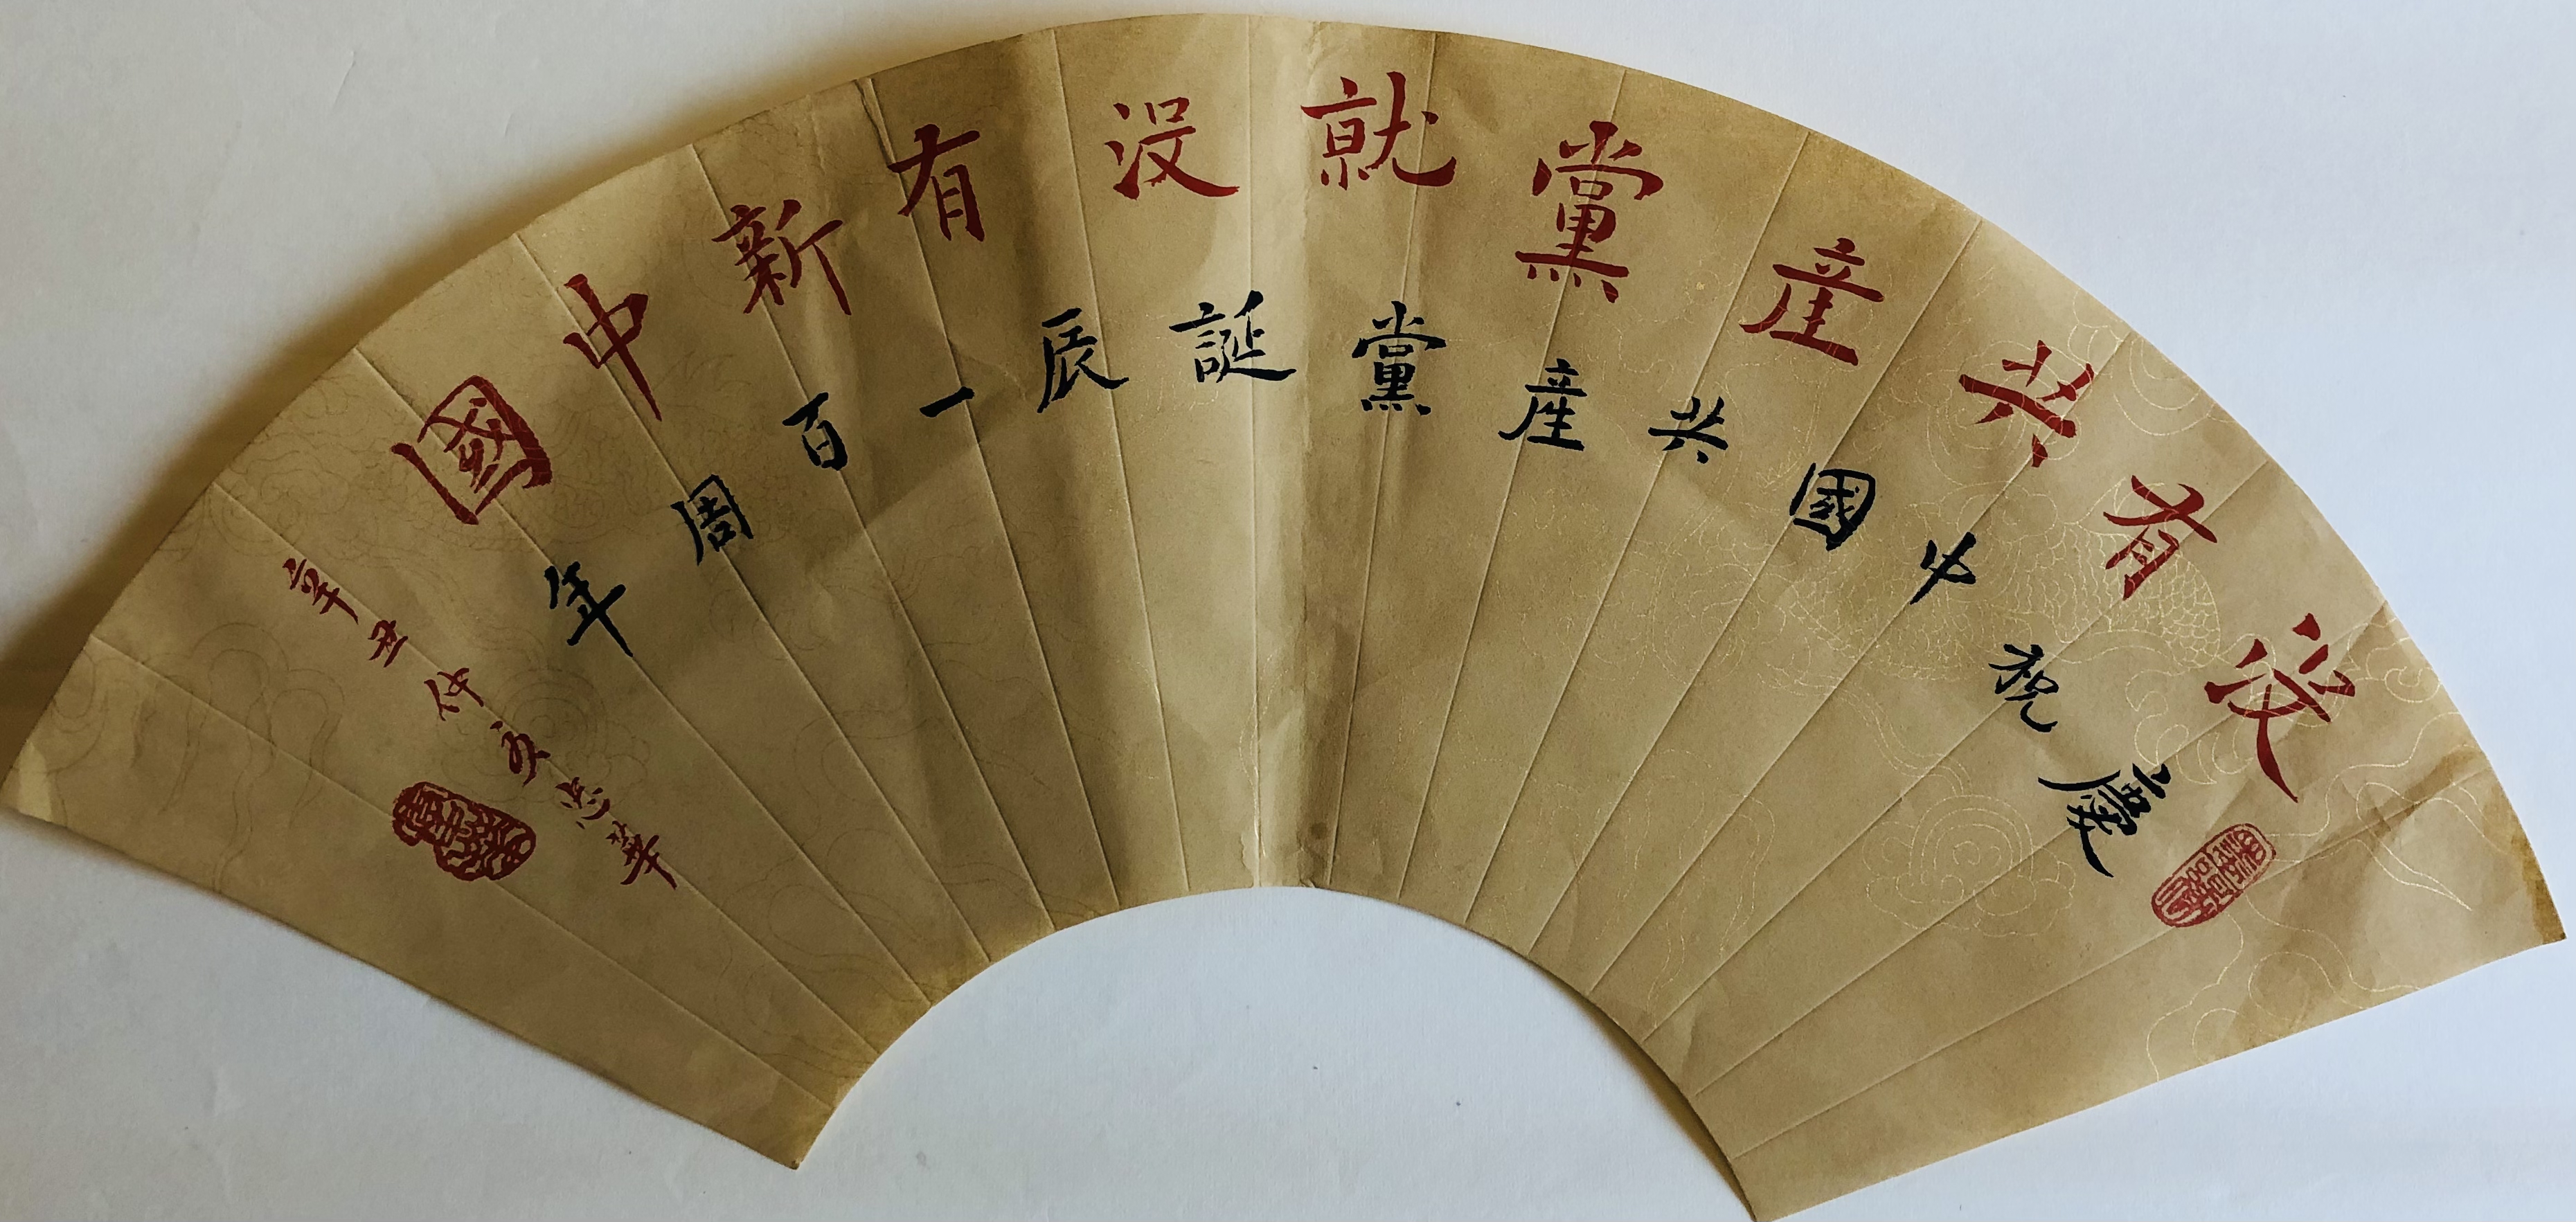 没有共産黨就没有新中國
慶祝中國共産黨誕辰一百周年
辛丑仲夏志華